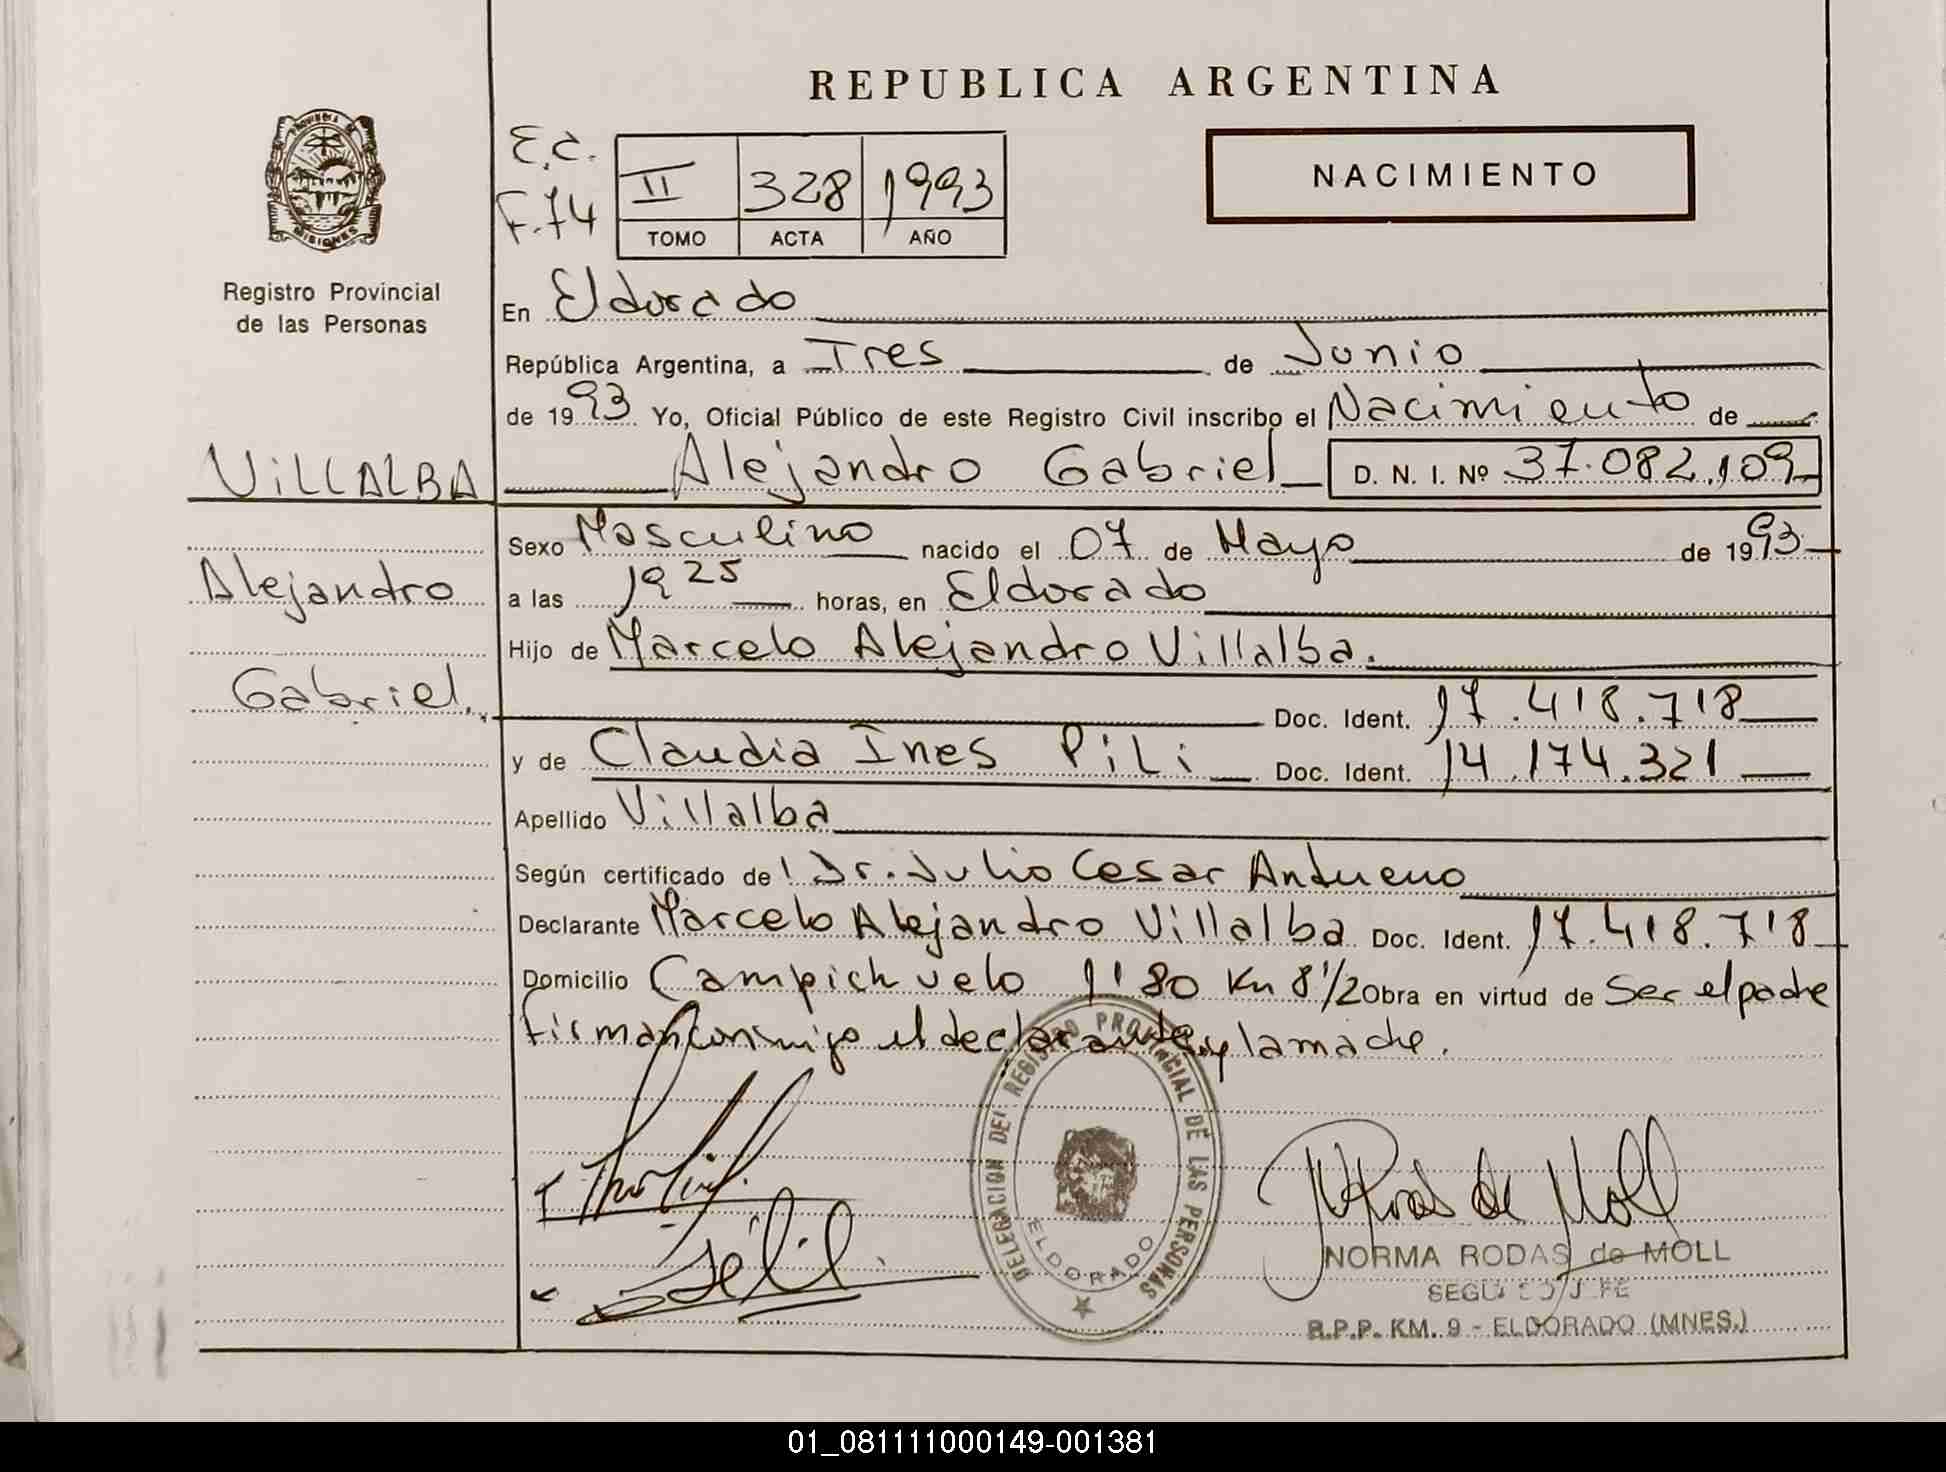 REPUBLICA ARGENTINA
PROVINCIA DE
MISIONES
Registro Provincial
de las Personas
E.C.
F.74
II 328 1993
TOMO ACTA AÑO
NACIMIENTO
En Eldorado
República Argentina, a Tres de Junio
de 1993 Yo, Oficial Público de este Registro Civil inscribo el Nacimiento de
VILLALBA
Alejandro Gabriel D. N. I. Nº 37.082.109
Sexo Masculino nacido el 07 de Mayo de 1993
Alejandro
a las 19 25 horas, en Eldorado
Hijo de Marcelo Alejandro Villalba.
Gabriel.
Doc. Ident. 17.418.718
y de Claudia Ines Pili Doc. Ident. 14.174.321
Apellido Villalba
Según certificado del Dr. Julio Cesar Andueno
Declarante Marcelo Alejandro Villalba Doc. Ident. 17.418.718
Domicilio Campichuelo 1180 Km 8 1/2 Obra en virtud de Ser el padre
firman conmigo el declarante y la madre.
DELEGACION DEL REGISTRO PROVINCIAL DE LAS PERSONAS
ELDORADO
N Rodas de Moll
NORMA RODAS de MOLL
SEGUNDO JEFE
R.P.P. KM. 9 - ELDORADO (MNES.)
01_081111000149-001381